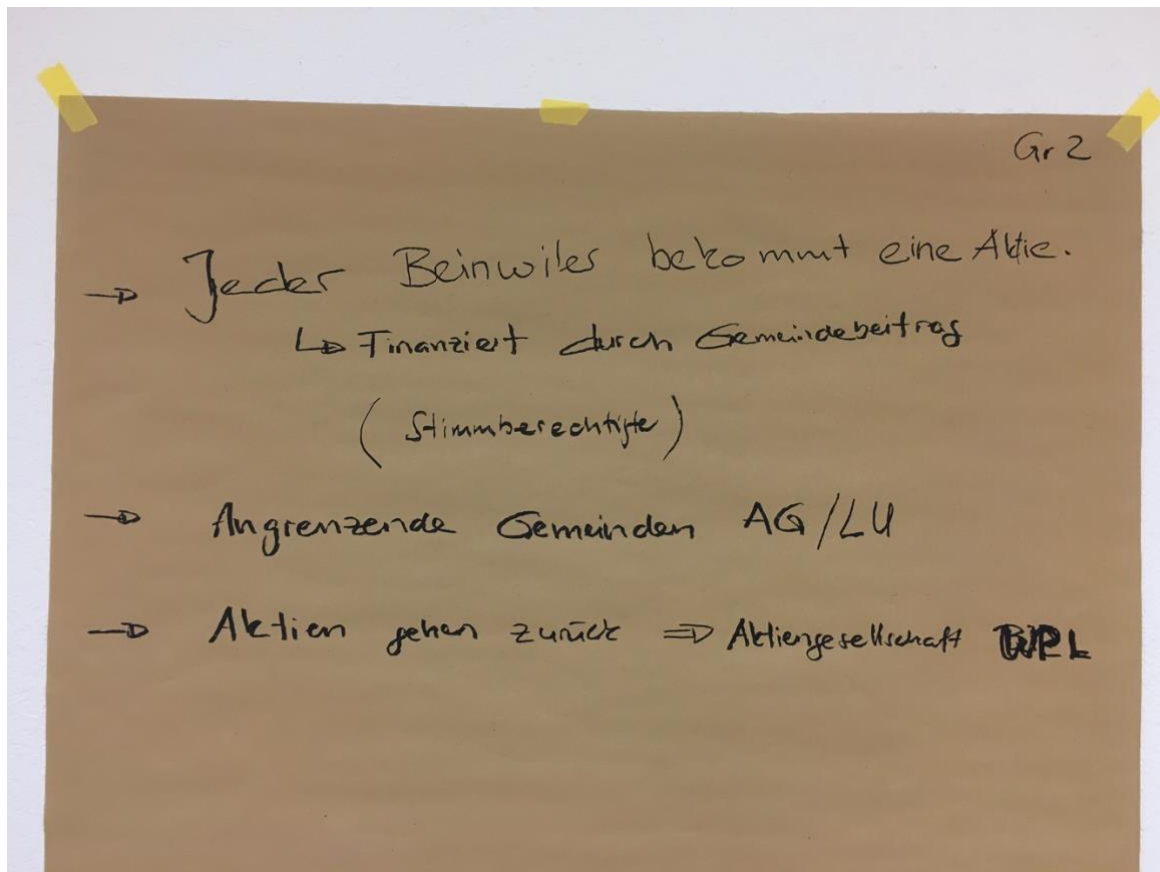 Gr 2
→ Jeder Beinwiler bekommt eine Aktie.
↳ Finanziert durch Gemeindebeitrag
(Stimmberechtigte)
→ Angrenzende Gemeinden AG/LU
→ Aktien gehen zurück ⇒ Aktiengesellschaft